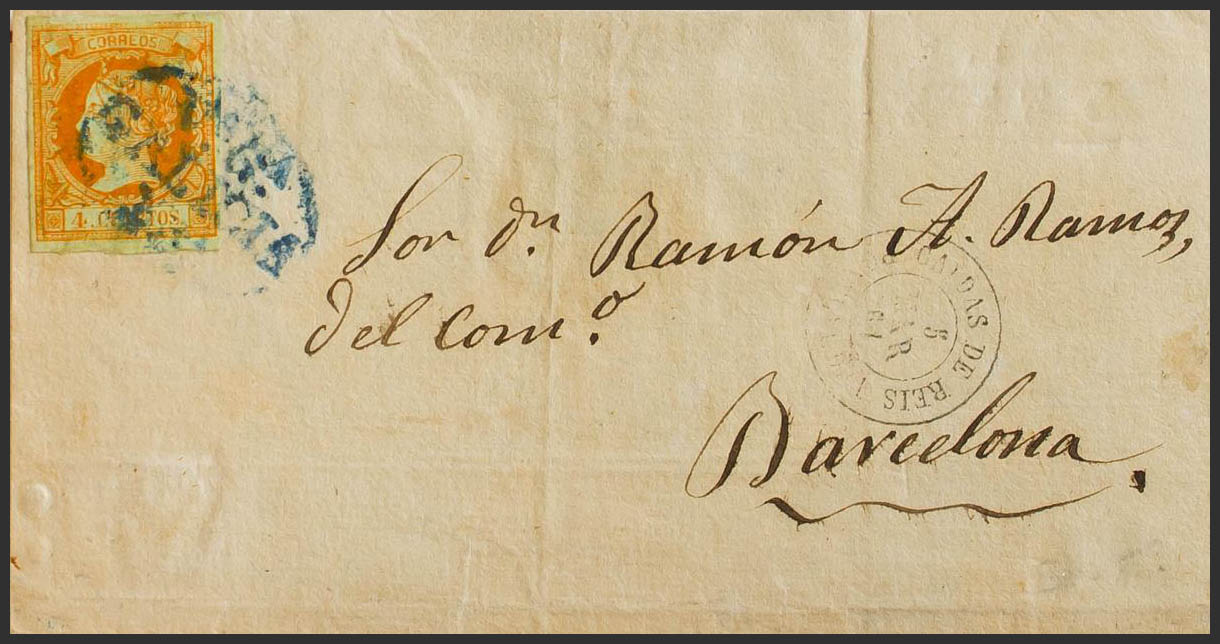 CORREOS
4. CUARTOS.
Sor Dn. Ramón A. Ramos,
del Com.o
CALDAS DE REIS
5
MAR
61
Barcelona.